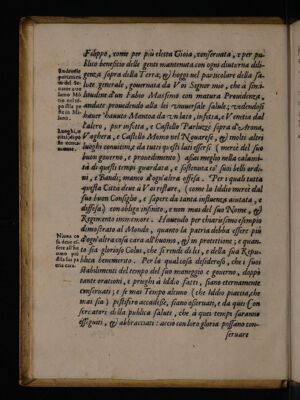 Filippo, come per più eletta Gioia, conseruata, e per pu-
blico beneficio delle genti mantenuta con ogni diuturna dili-
genza sopra della Terra; & hoggi nel particolare della sa-
lute generale, gouernata da Voi Signor mio, che à simi-
litudine d'un Fabio Massimo con matura Prouidenza,
andate prouedendo alla lei vniuersale salute; vedendosi
hauer hauuto Mantoa da vn lato, infetta, e Venetia dal
l'altro, pur infetta, e Castello Parluzzo sopra d'Arona,
Voghera, e Castello Momo nel Nouarese, & molti altri
luoghi conuicini, e da tutti questi lati essersi (mercè del suo
buon gouerno, e prouedimento) assai meglio nella calami-
tà di questi tempi guardata, e sostenuta co' suoi belli ordi-
ni, e Bandi; manco d'ogn'altra offesa. Per i quali tutta
questa Città deue à Voi restare, (come la Iddio mercè dal
suo buon Consiglio, e sapere da tanta influenza aiutata, e
diffesa) con obligo infinito, e non mai del suo Nome, &
Regimento immemore. Hauendo per chiarissimo essempio
dimostrato al Mondo, quanto la patria debba essere più
d'ogn'altra cosa cara all'huomo, & in protettione; e quan-
to sia glorioso Colui, che si rende di lei, e della sua Repu-
blica benemerito. Per la qual cosa desiderosò, che i suoi
stabilimenti del tempo del suo maneggio e gouerno, doppò
tante orationi, e prieghi à Iddio fatti, siano eternamente
conseruati; e se mai Tempo alcuno (che Iddio piaccia, che
mai sia) pestifero accadesse, siano osseruati, e da quei Con-
seruatori della publica saluti, che à quei tempi saranno
essequiti, & abbracciati: acciò con loro gloria possano con-
seruare
Luoghi, e
città, dispo
ste come
munemente.